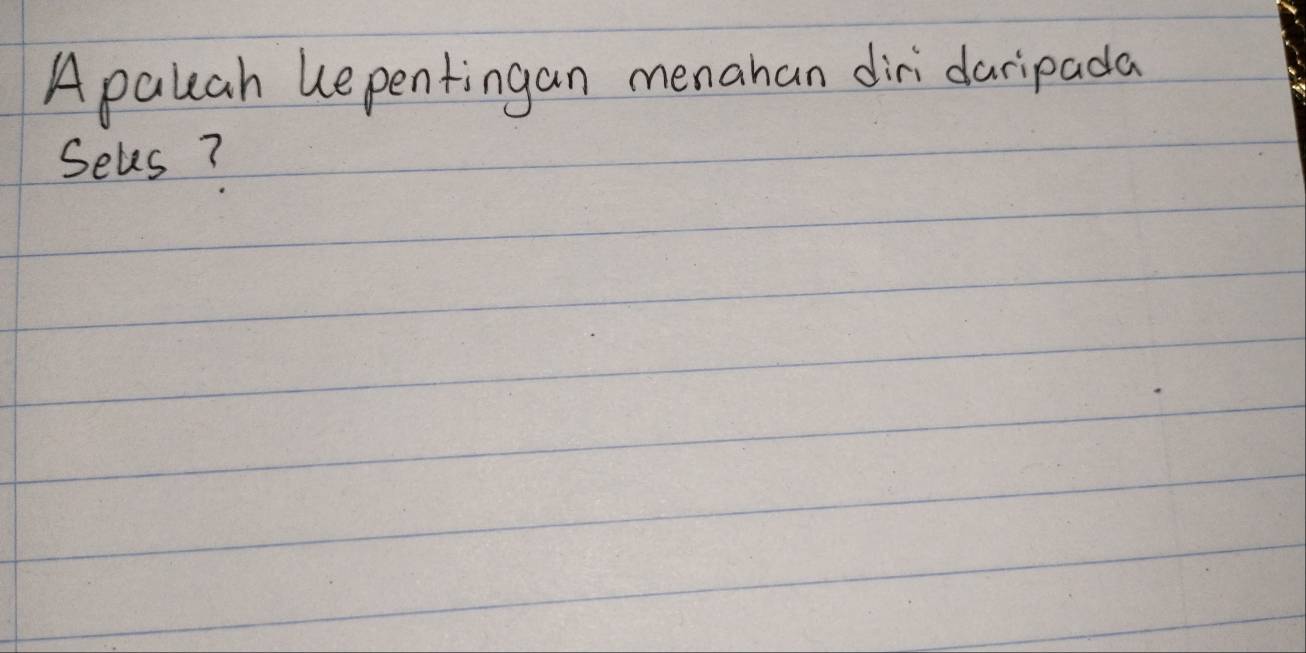 Apakah kepentingan menahan diri daripada
Seks ?